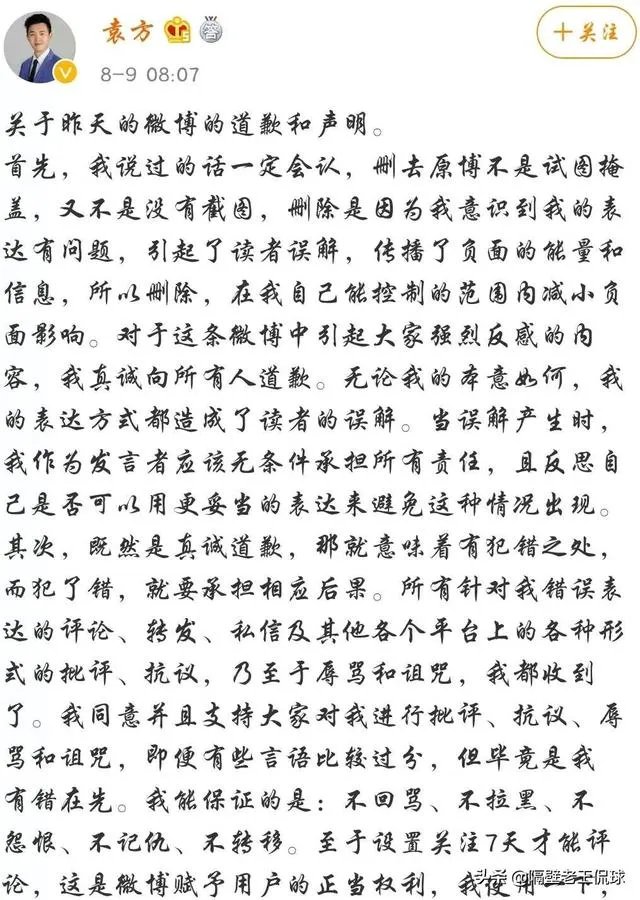 袁方
+关注
8-9 08:07
关于昨天的微博的道歉和声明。
首先，我说过的话一定会认，删去原博不是试图掩
盖，又不是没有截图，删除是因为我意识到我的表
达有问题，引起了读者误解，传播了负面的能量和
信息，所以删除，在我自己能控制的范围内减小负
面影响。对于这条微博中引起大家强烈反感的内
容，我真诚向所有人道歉。无论我的本意如何，我
的表达方式都造成了读者的误解。当误解产生时，
我作为发言者应该无条件承担所有责任，且反思自
己是否可以用更妥当的表达来避免这种情况出现。
其次，既然是真诚道歉，那就意味着有犯错之处，
而犯了错，就要承担相应后果。所有针对我错误表
达的评论、转发、私信及其他各个平台上的各种形
式的批评、抗议，乃至于辱骂和诅咒，我都收到
了。我同意并且支持大家对我进行批评、抗议、辱
骂和诅咒，即便有些言语比较过分，但毕竟是我
有错在先。我能保证的是：不回骂、不拉黑、不
怨恨、不记仇、不转移。至于设置关注7天才能评
论，这是微博赋予用户的正当权利，我使用一下，
头条 @隔壁老王侃球